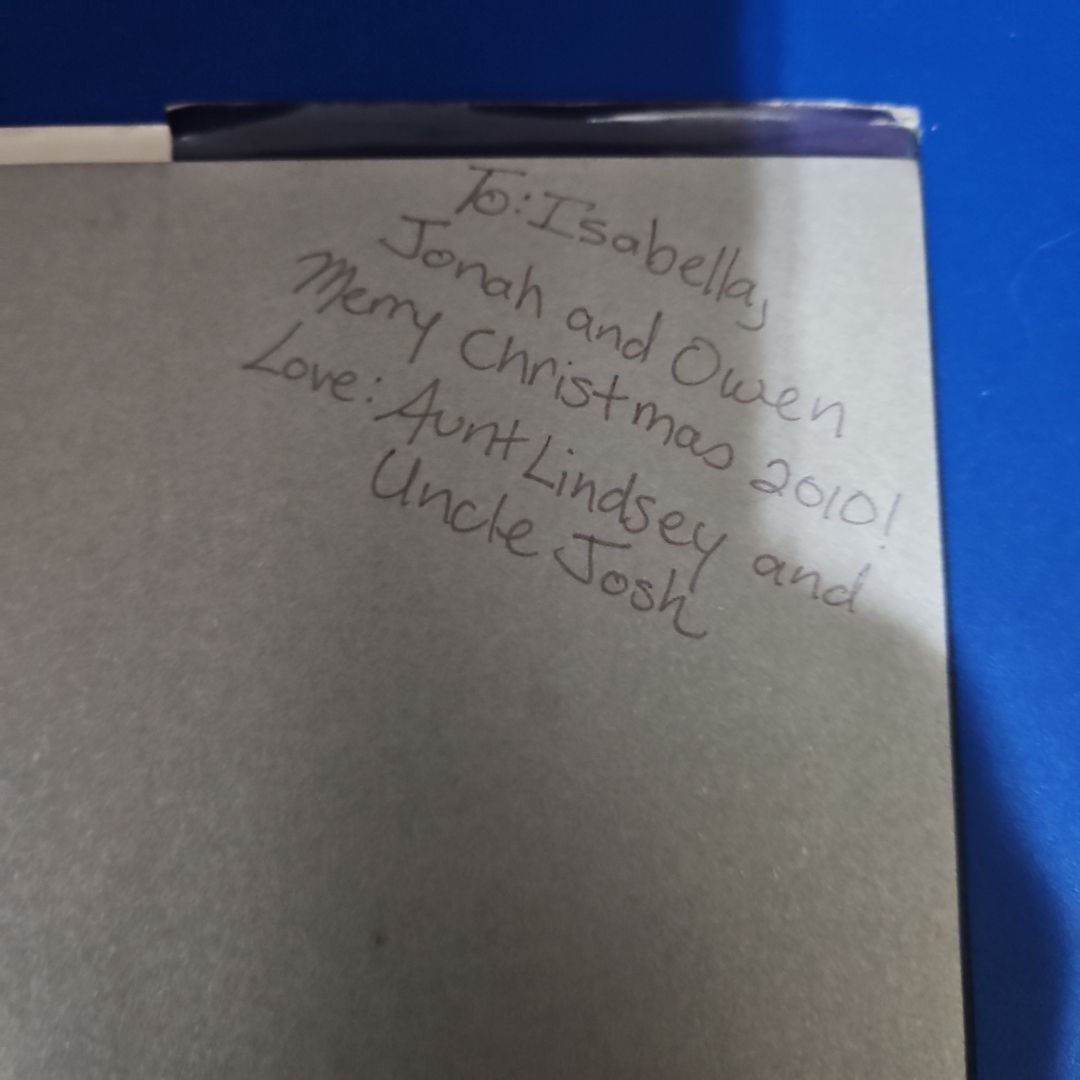 To: Isabella,
Jonah and Owen
Merry Christmas 2010!
Love: Aunt Lindsey and
Uncle Josh